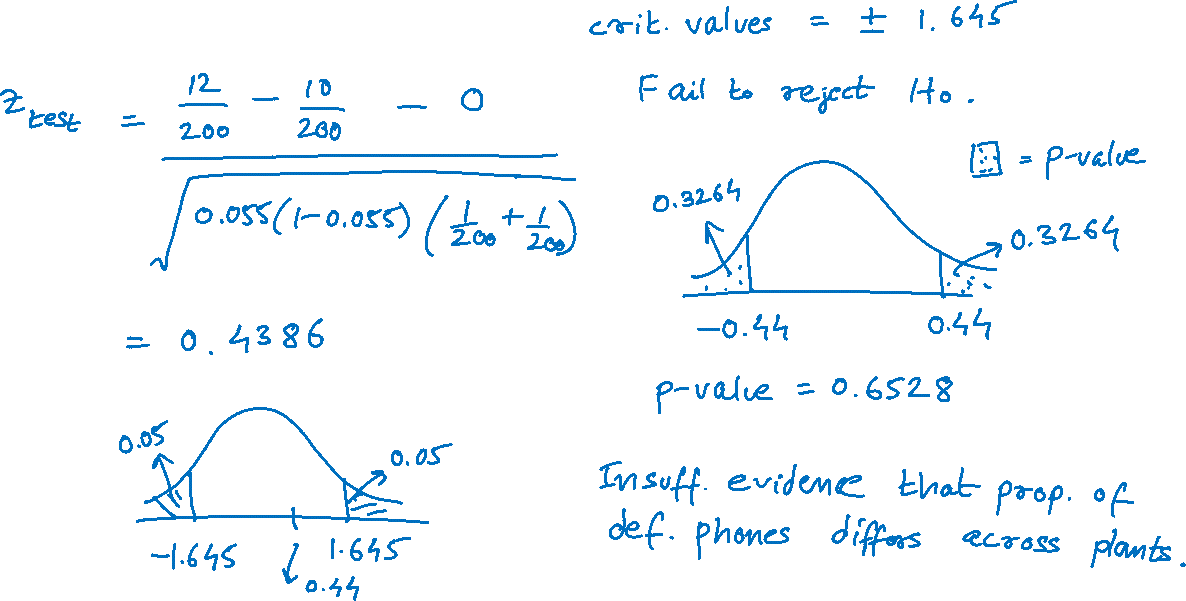 z_test = (12/200 − 10/200 − 0) / √(0.055(1−0.055)(1/200 + 1/200))
= 0.4386
0.05
0.05
−1.645
1.645
0.44
crit. values = ± 1.645
Fail to reject Ho.
= p-value
0.3264
0.3264
−0.44
0.44
p-value = 0.6528
Insuff. evidence that prop. of
def. phones differs across plants.